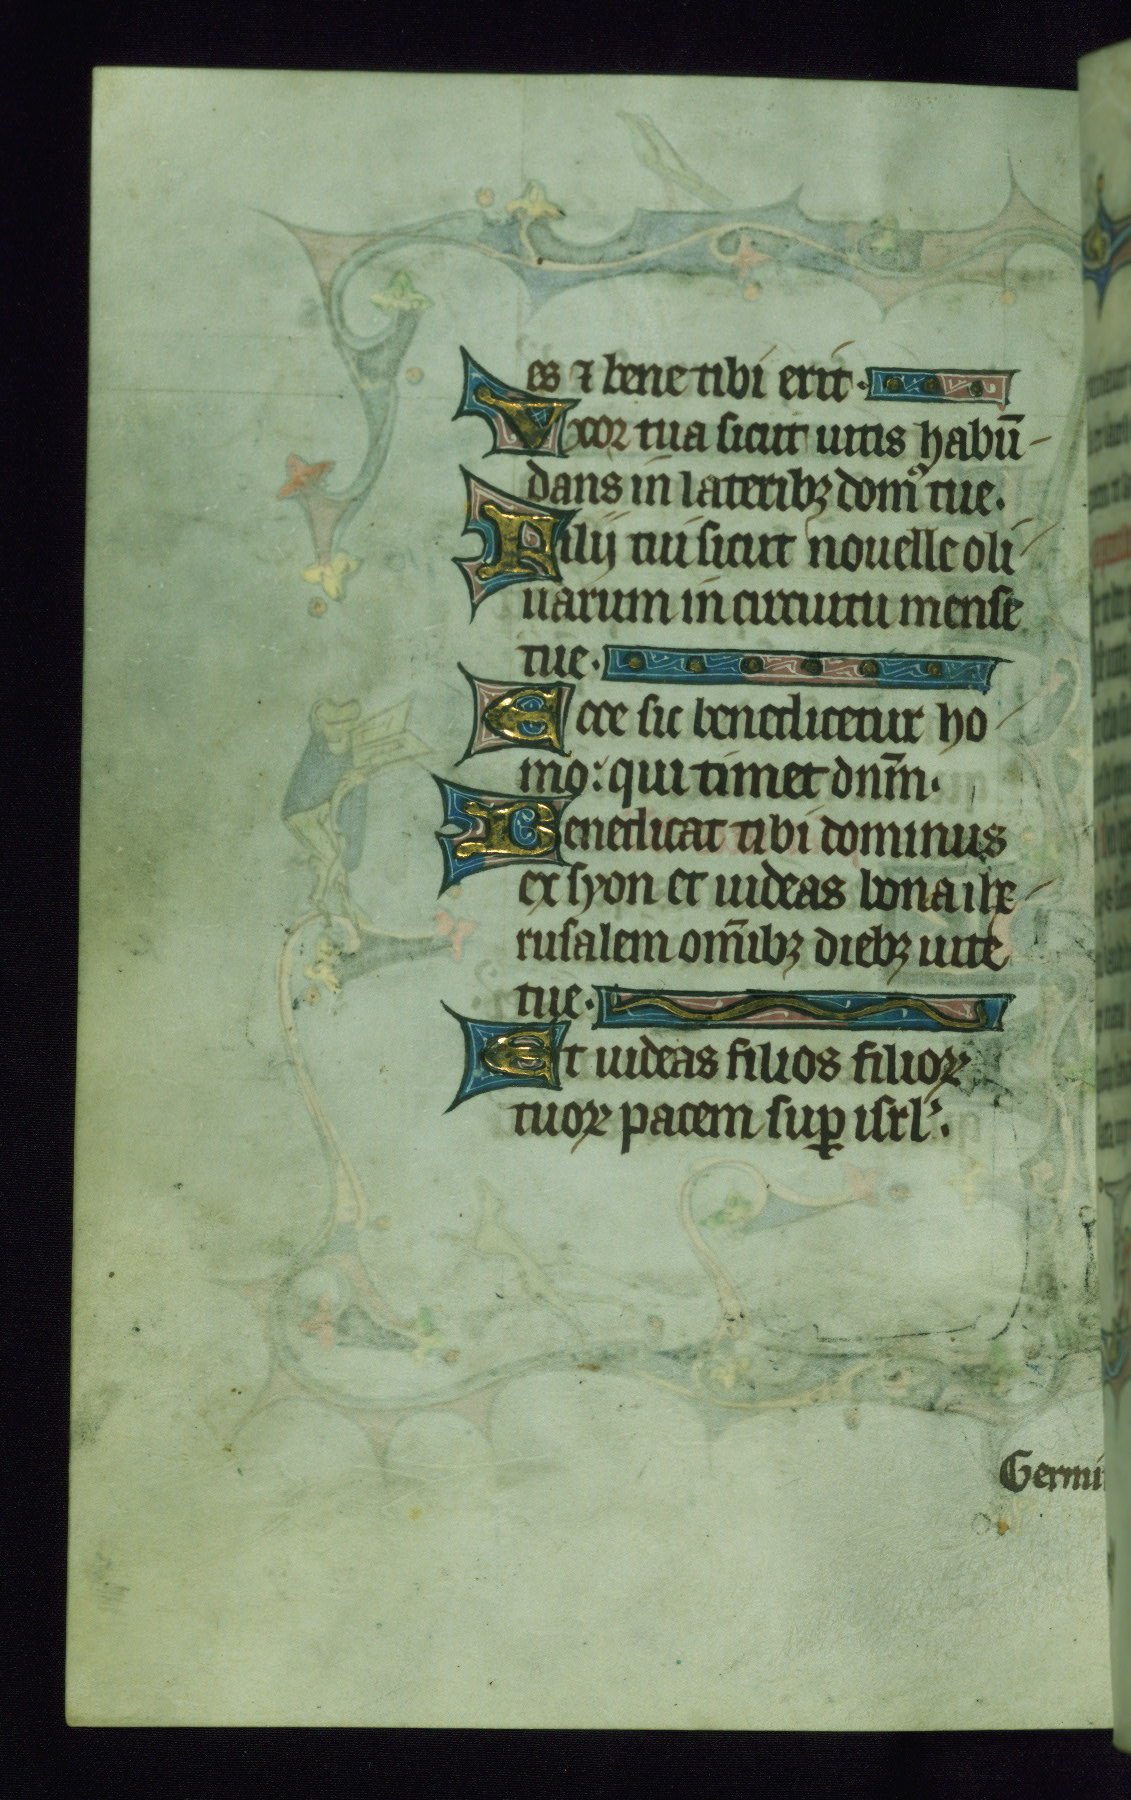 es ⁊ bene tibi erit·
Vxor tua sicut uitis habū
dans in lateribꝫ domꝰ tue.
Filij tui sicut nouelle oli
uarum in circuitu mense
tue·
Ecce sic benedicetur ho
mo: qui timet dn̄m·
Benedicat tibi dominus
ex syon et uideas bona ihe
rusalem om̄ibꝫ diebꝫ uite
tue·
Et uideas filios filioꝝ
tuoꝝ pacem suꝑ isrl'.
Germi